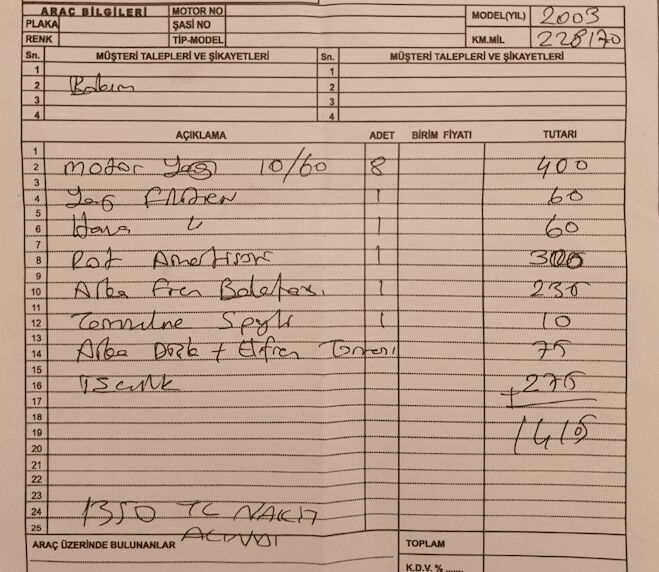 ARAÇ BİLGİLERİ MOTOR NO MODEL(YIL) 2003
PLAKA ŞASİ NO
RENK TİP-MODEL KM.MİL 228170
Sn. MÜŞTERİ TALEPLERİ VE ŞİKAYETLERİ Sn. MÜŞTERİ TALEPLERİ VE ŞİKAYETLERİ
1 1
2 Bakım 2
3 3
4 4
AÇIKLAMA ADET BİRİM FİYATI TUTARI
1
2 motor yağ 10/60 8 400
3
4 Yağ Filitren 1 60
5
6 Hava " 1 60
7
8 Rot Amertisör 1 300
9
10 Arka Fren Balatası 1 235
11
12 Temizleme Spreyi 1 10
13
14 Arka Disk + Elfren Tamiri 75
15
16 İşçilik + 275
17
18 1415
19
20
21
22
23
24 1350 TL NAKİT
25 ALINDI
ARAÇ ÜZERİNDE BULUNANLAR TOPLAM
K.D.V. % ......